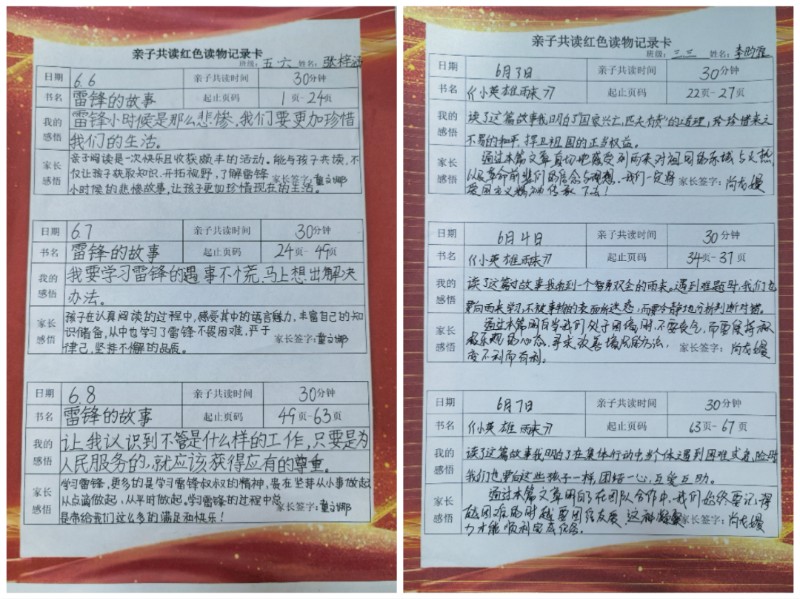 亲子共读红色读物记录卡
班级：五六 姓名：张梓
日期 6.6 亲子共读时间 30分钟
书名 雷锋的故事 起止页码 1页-24页
我的感悟 雷锋小时候是那么悲惨，我们要更加珍惜
我们的生活。
家长感悟 亲子阅读是一次快乐且收获颇丰的活动。能与孩子共读，不
仅让孩子获取知识、开拓视野，了解雷锋
小时候的悲惨故事，让孩子更加珍惜现在的生活。 家长签字：
日期 6.7 亲子共读时间 30分钟
书名 雷锋的故事 起止页码 24页-49页
我的感悟 我要学习雷锋的遇事不慌，马上想出解决
办法。
家长感悟 孩子在认真阅读的过程中，感受书中的语言魅力，丰富自己的知
识储备，从中也学习了雷锋不畏困难，严于
律己，坚苹不懈的品质。 家长签字：
日期 6.8 亲子共读时间 30分钟
书名 雷锋的故事 起止页码 49页-63页
我的感悟 让我认识到不管是什么样的工作，只要是为
人民服务的，就应该获得应有的尊重。
家长感悟 学习雷锋，更多的是学习雷锋叔叔的精神，贵在坚苹从小事做起
从点滴做起，从平时做起，学习雷锋的过程中总
是带给我们这么多的满足和快乐！ 家长签字：
亲子共读红色读物记录卡
班级：三三 姓名：李昀
日期 6月3日 亲子共读时间 30分钟
书名 《小英雄雨来》 起止页码 22页-27页
我的感悟 读了这篇故事我明白了“国家兴亡，匹夫有责”的道理，珍惜来之
不易的和平，捍卫祖国的正当权益。
家长感悟 通过本篇文章真切地感受到雨来对祖国的热爱
以及革命前辈们的信念与理想，我们一定将
爱国主义精神传承下去！ 家长签字：尚
日期 6月4日 亲子共读时间 30分钟
书名 《小英雄雨来》 起止页码 34页-37页
我的感悟 读了这篇故事我看到一个智勇双全的雨来。遇到难题时，我们也
要向雨来学习，不被事物的表面所迷惑，而要冷静地分析判断对错。
家长感悟 通过本篇明白当我们处于困境时，不要丧气，而要保持积
极乐观的心态，寻求改善境况的方法，
变不利而有利。 家长签字：尚
日期 6月7日 亲子共读时间 30分钟
书名 《小英雄雨来》 起止页码 63页-67页
我的感悟 读了这篇故事我明白了在集体行动中，个体遇到困难或危险时
我们也要向这些孩子一样，团结一心，互爱互助。
家长感悟 通过本篇文章明白在团队合作中，我们始终要记得
越困难的时越要团结友爱，这种凝聚
力才能顺利完成任务。 家长签字：尚